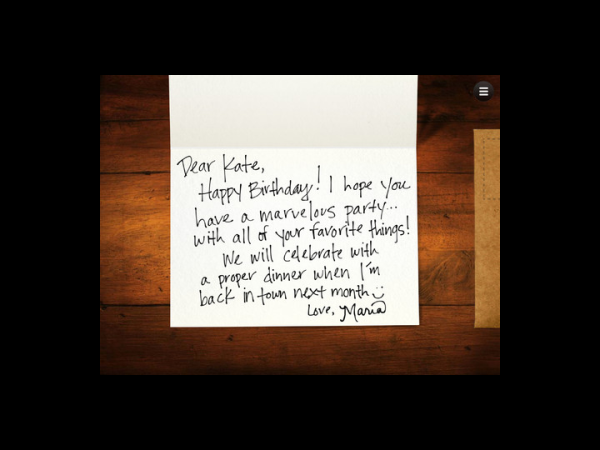 Dear Kate,
Happy Birthday! I hope you
have a marvelous party...
with all of your favorite things!
We will celebrate with
a proper dinner when I'm
back in town next month :)
Love, Maria